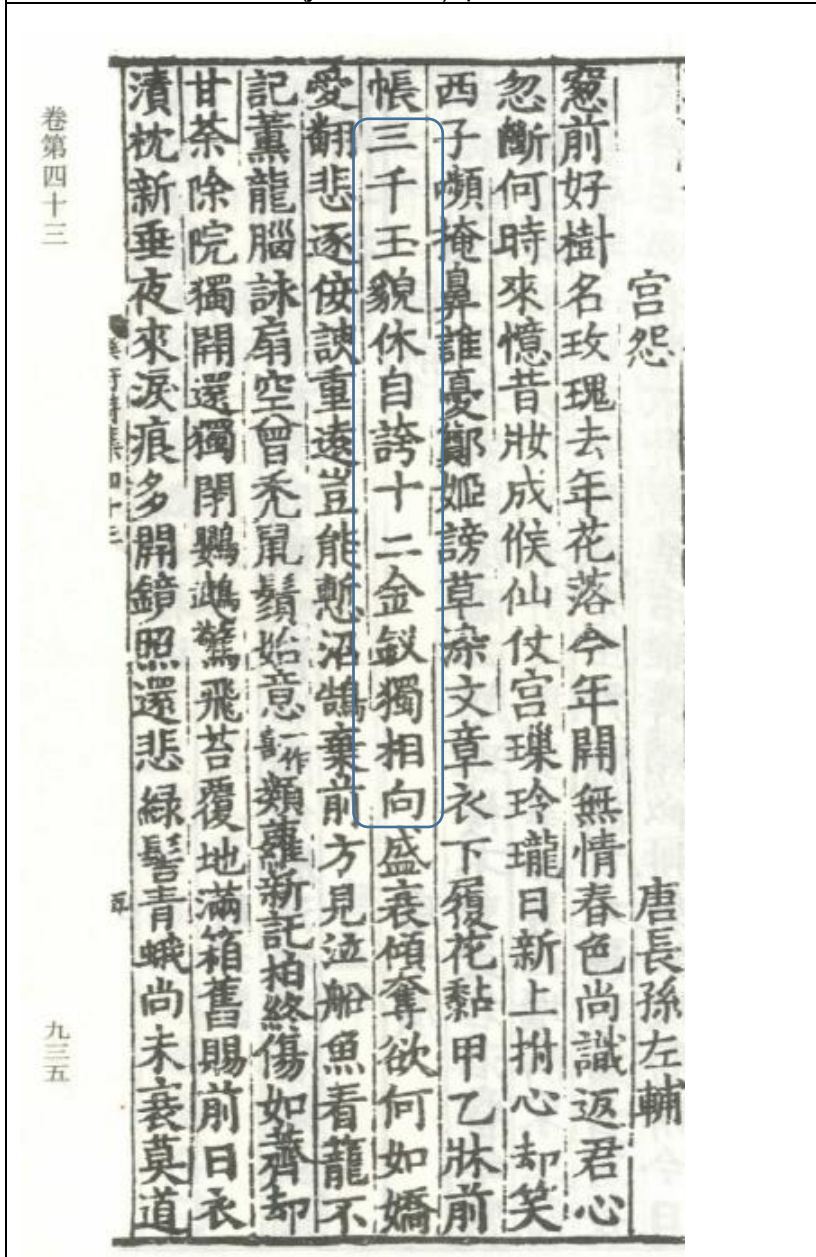 宫怨 唐長孫左輔
窓前好樹名玫瑰去年花落今年開無情春色尚識返君心
忽斷何時來憶昔妝成候仙仗宫璅玲瓏日新上拊心却笑
西子嚬掩鼻誰憂鄭姬謗草染文章衣下履花黏甲乙牀前
帳三千玉貌休自誇十二金釵獨相向盛衰傾奪欲何如嬌
愛翻悲逐佞諛重遠豈能慙沼鵠棄前方見泣船魚看籠不
記薰龍腦詠扇空曾禿鼠鬚始意一作喜類蘿新託柏終傷如薺却
甘荼除院獨開還獨閉鸚鵡驚飛苔覆地滿箱舊賜前日衣
漬枕新垂夜來淚痕多開鏡照還悲緑髻青蛾尚未衰莫道
卷第四十三
九三五